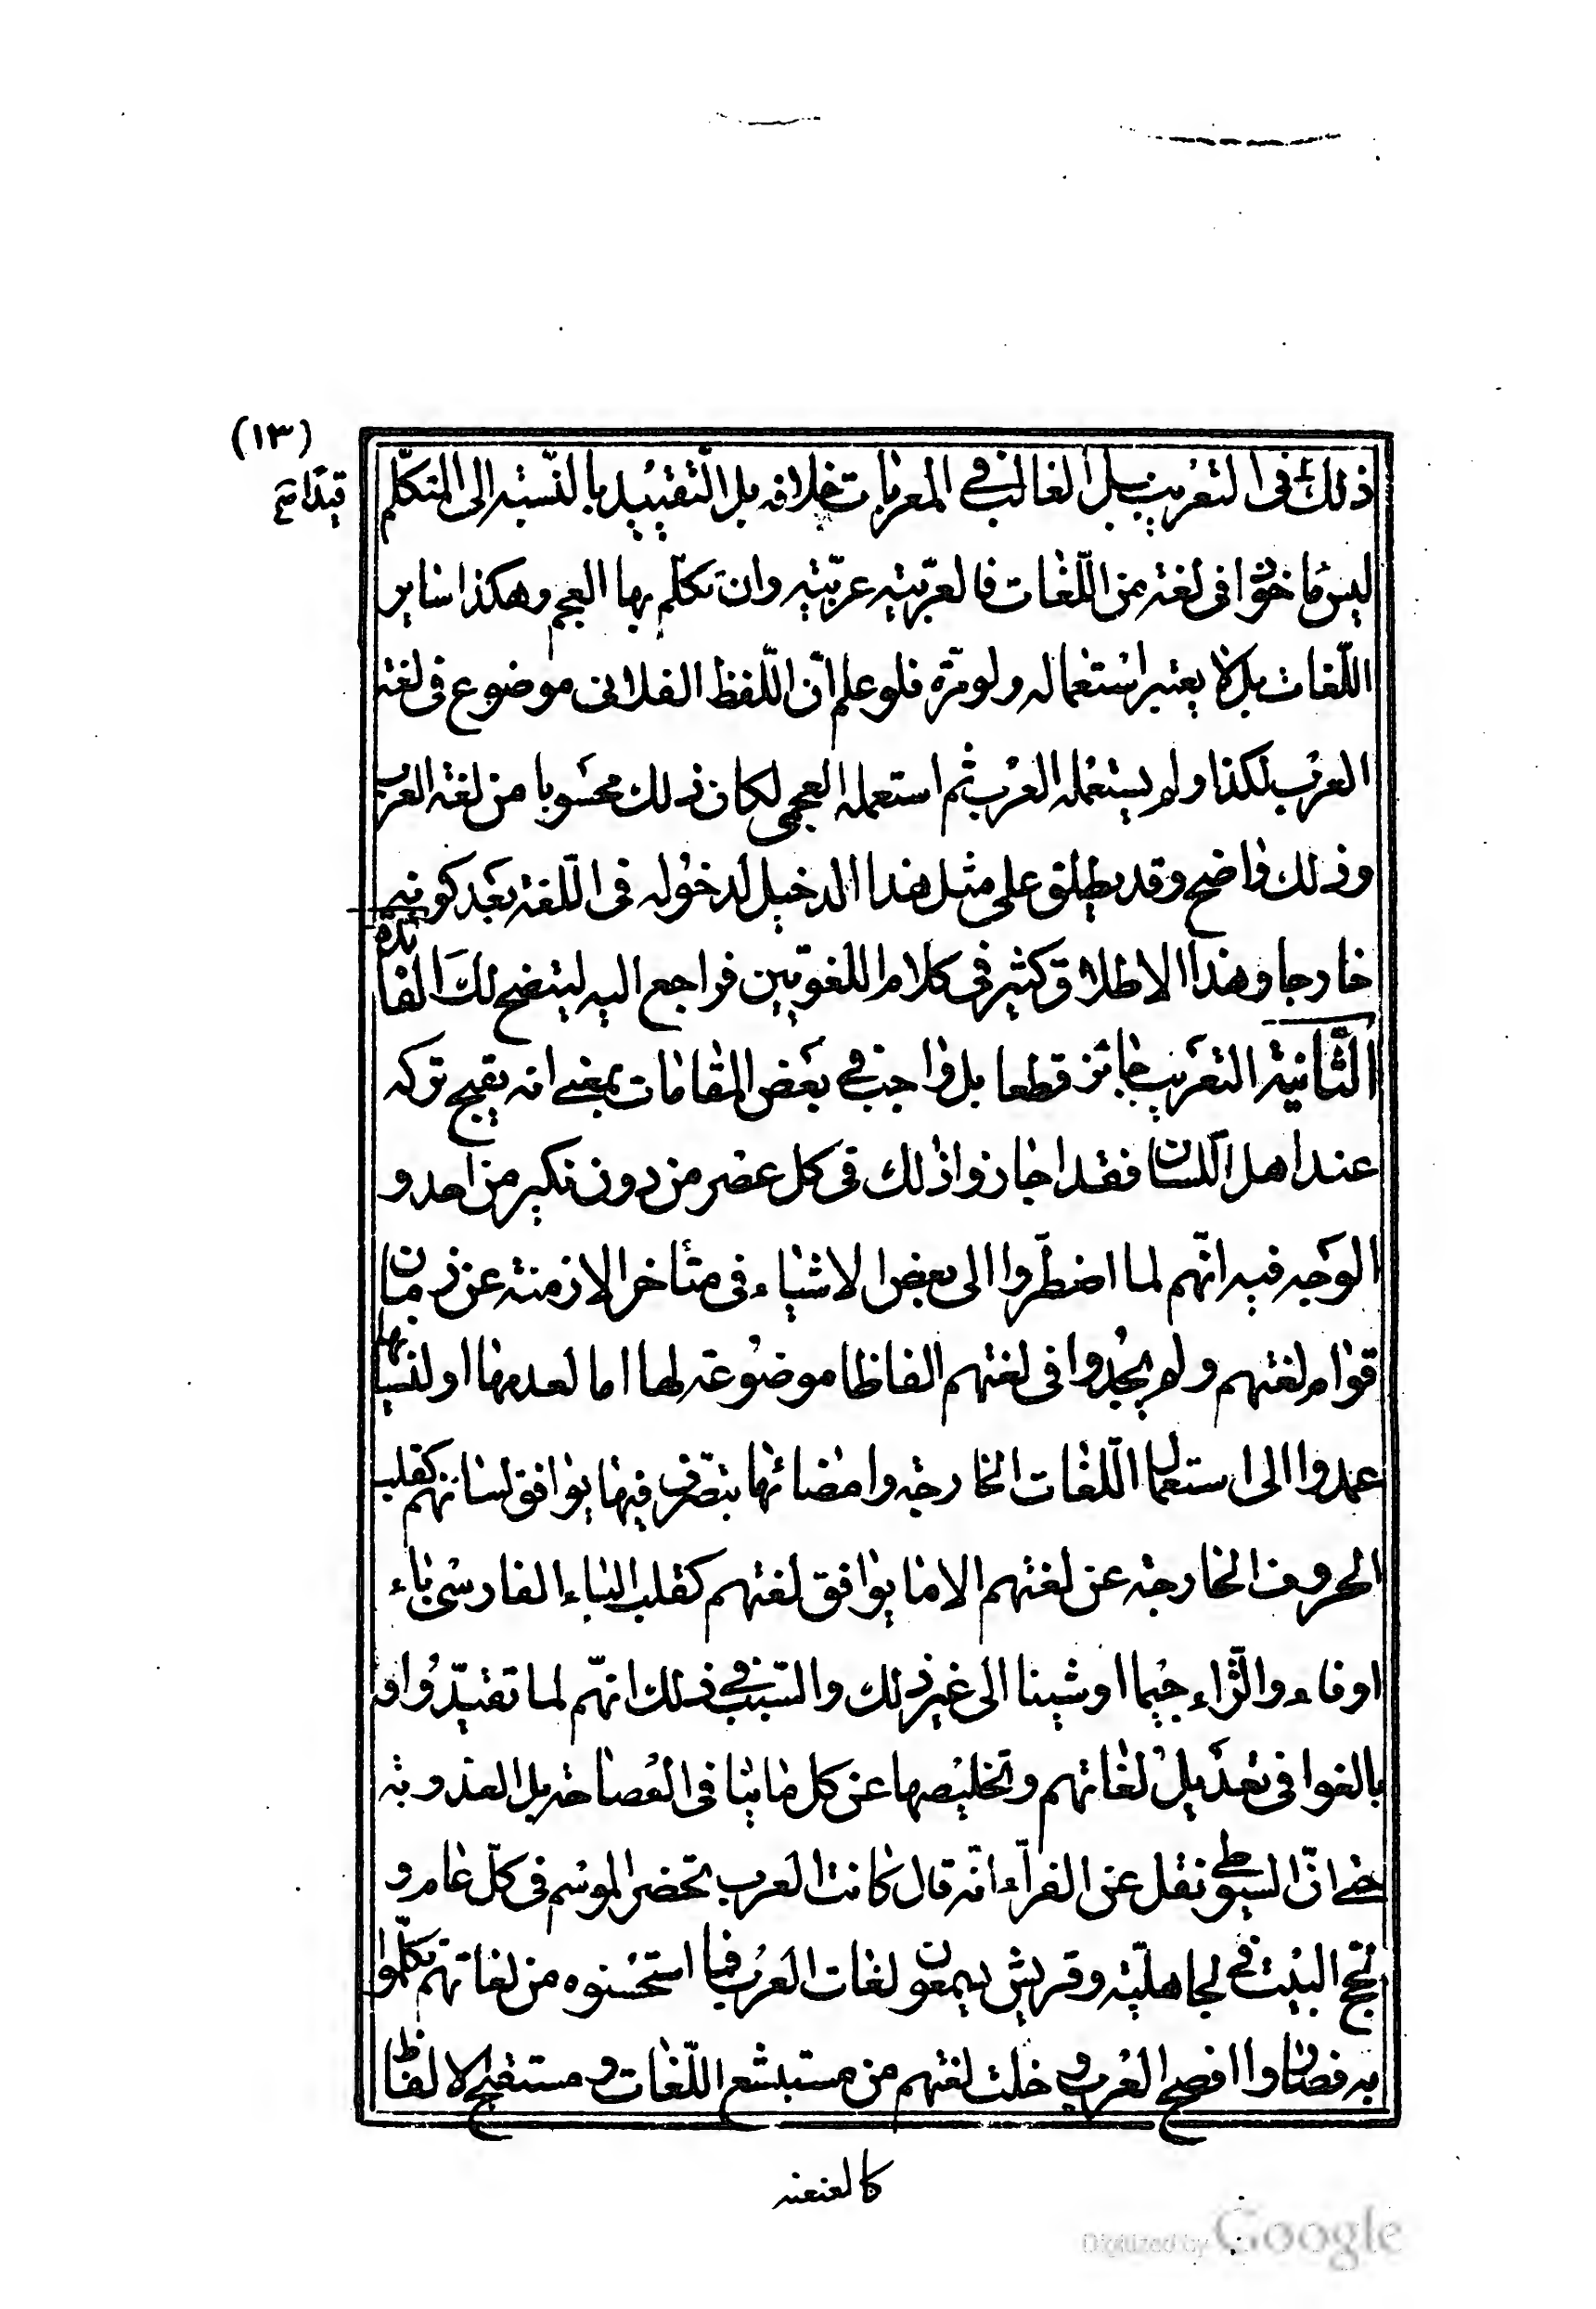 (١٣)
قيدا صح
ذلك فى التعريب بل الغالب فى المعربات خلافه بل التقييد بالنسبة الى المتكلم
ليس ماخوذا فى لغة من اللغات فالعربية عربية وان تكلم بها العجم وهكذا ساير
اللغات بل لا يعتبر استعماله ولو مرة فلو علم ان اللفظ الفلانى موضوع فى لغة
العرب لكذا ولم يستعمله العرب ثم استعمله العجمى لكان ذلك محسوبا من لغة العرب
وذلك واضح وقد يطلق على مثل هذا الدخيل لدخوله فى اللغة بعد كونه
خارجا وهذا الاطلاق كثير فى كلام اللغويين فراجع اليه ليتضح لك الفائدة
الثانية التعريب جائز قطعا بل واجب فى بعض المقامات بمعنى انه يقبح تركه
عند اهل اللسان فقد اجازوا ذلك فى كل عصر من دون نكير من احد و
الوجه فيه انهم لما اضطروا الى بعض الاشياء فى متأخر الازمنة عن زمان
قوام لغتهم ولم يجدوا فى لغتهم الفاظا موضوعة لها اما لعدمها او لنسيانها
عمدوا الى استعمال اللغات الخارجة وامضائها بتصرف فيها يوافق لسانهم كقلب
الحروف الخارجة عن لغتهم الا ما يوافق لغتهم كقلب الباء الفارسى باء
او فاء والژاء جيما او شينا الى غير ذلك والسبب فى ذلك انهم لما تقيدوا و
بالغوا فى تعديل لغاتهم وتخليصها عن كل ما ينافى الفصاحة بل العذوبة
حتى ان السيوطى نقل عن الفراء انه قال كانت العرب تحضر الموسم فى كل عام و
تحج البيت فى لجاهلية وقريش يسمعون لغات العرب فما استحسنوه من لغاتهم تكلموا
به فصاروا افصح العرب و خلت لغتهم من مستبشع اللغات و مستقبح الالفاظ
كالعنعنه
Digitized by Google